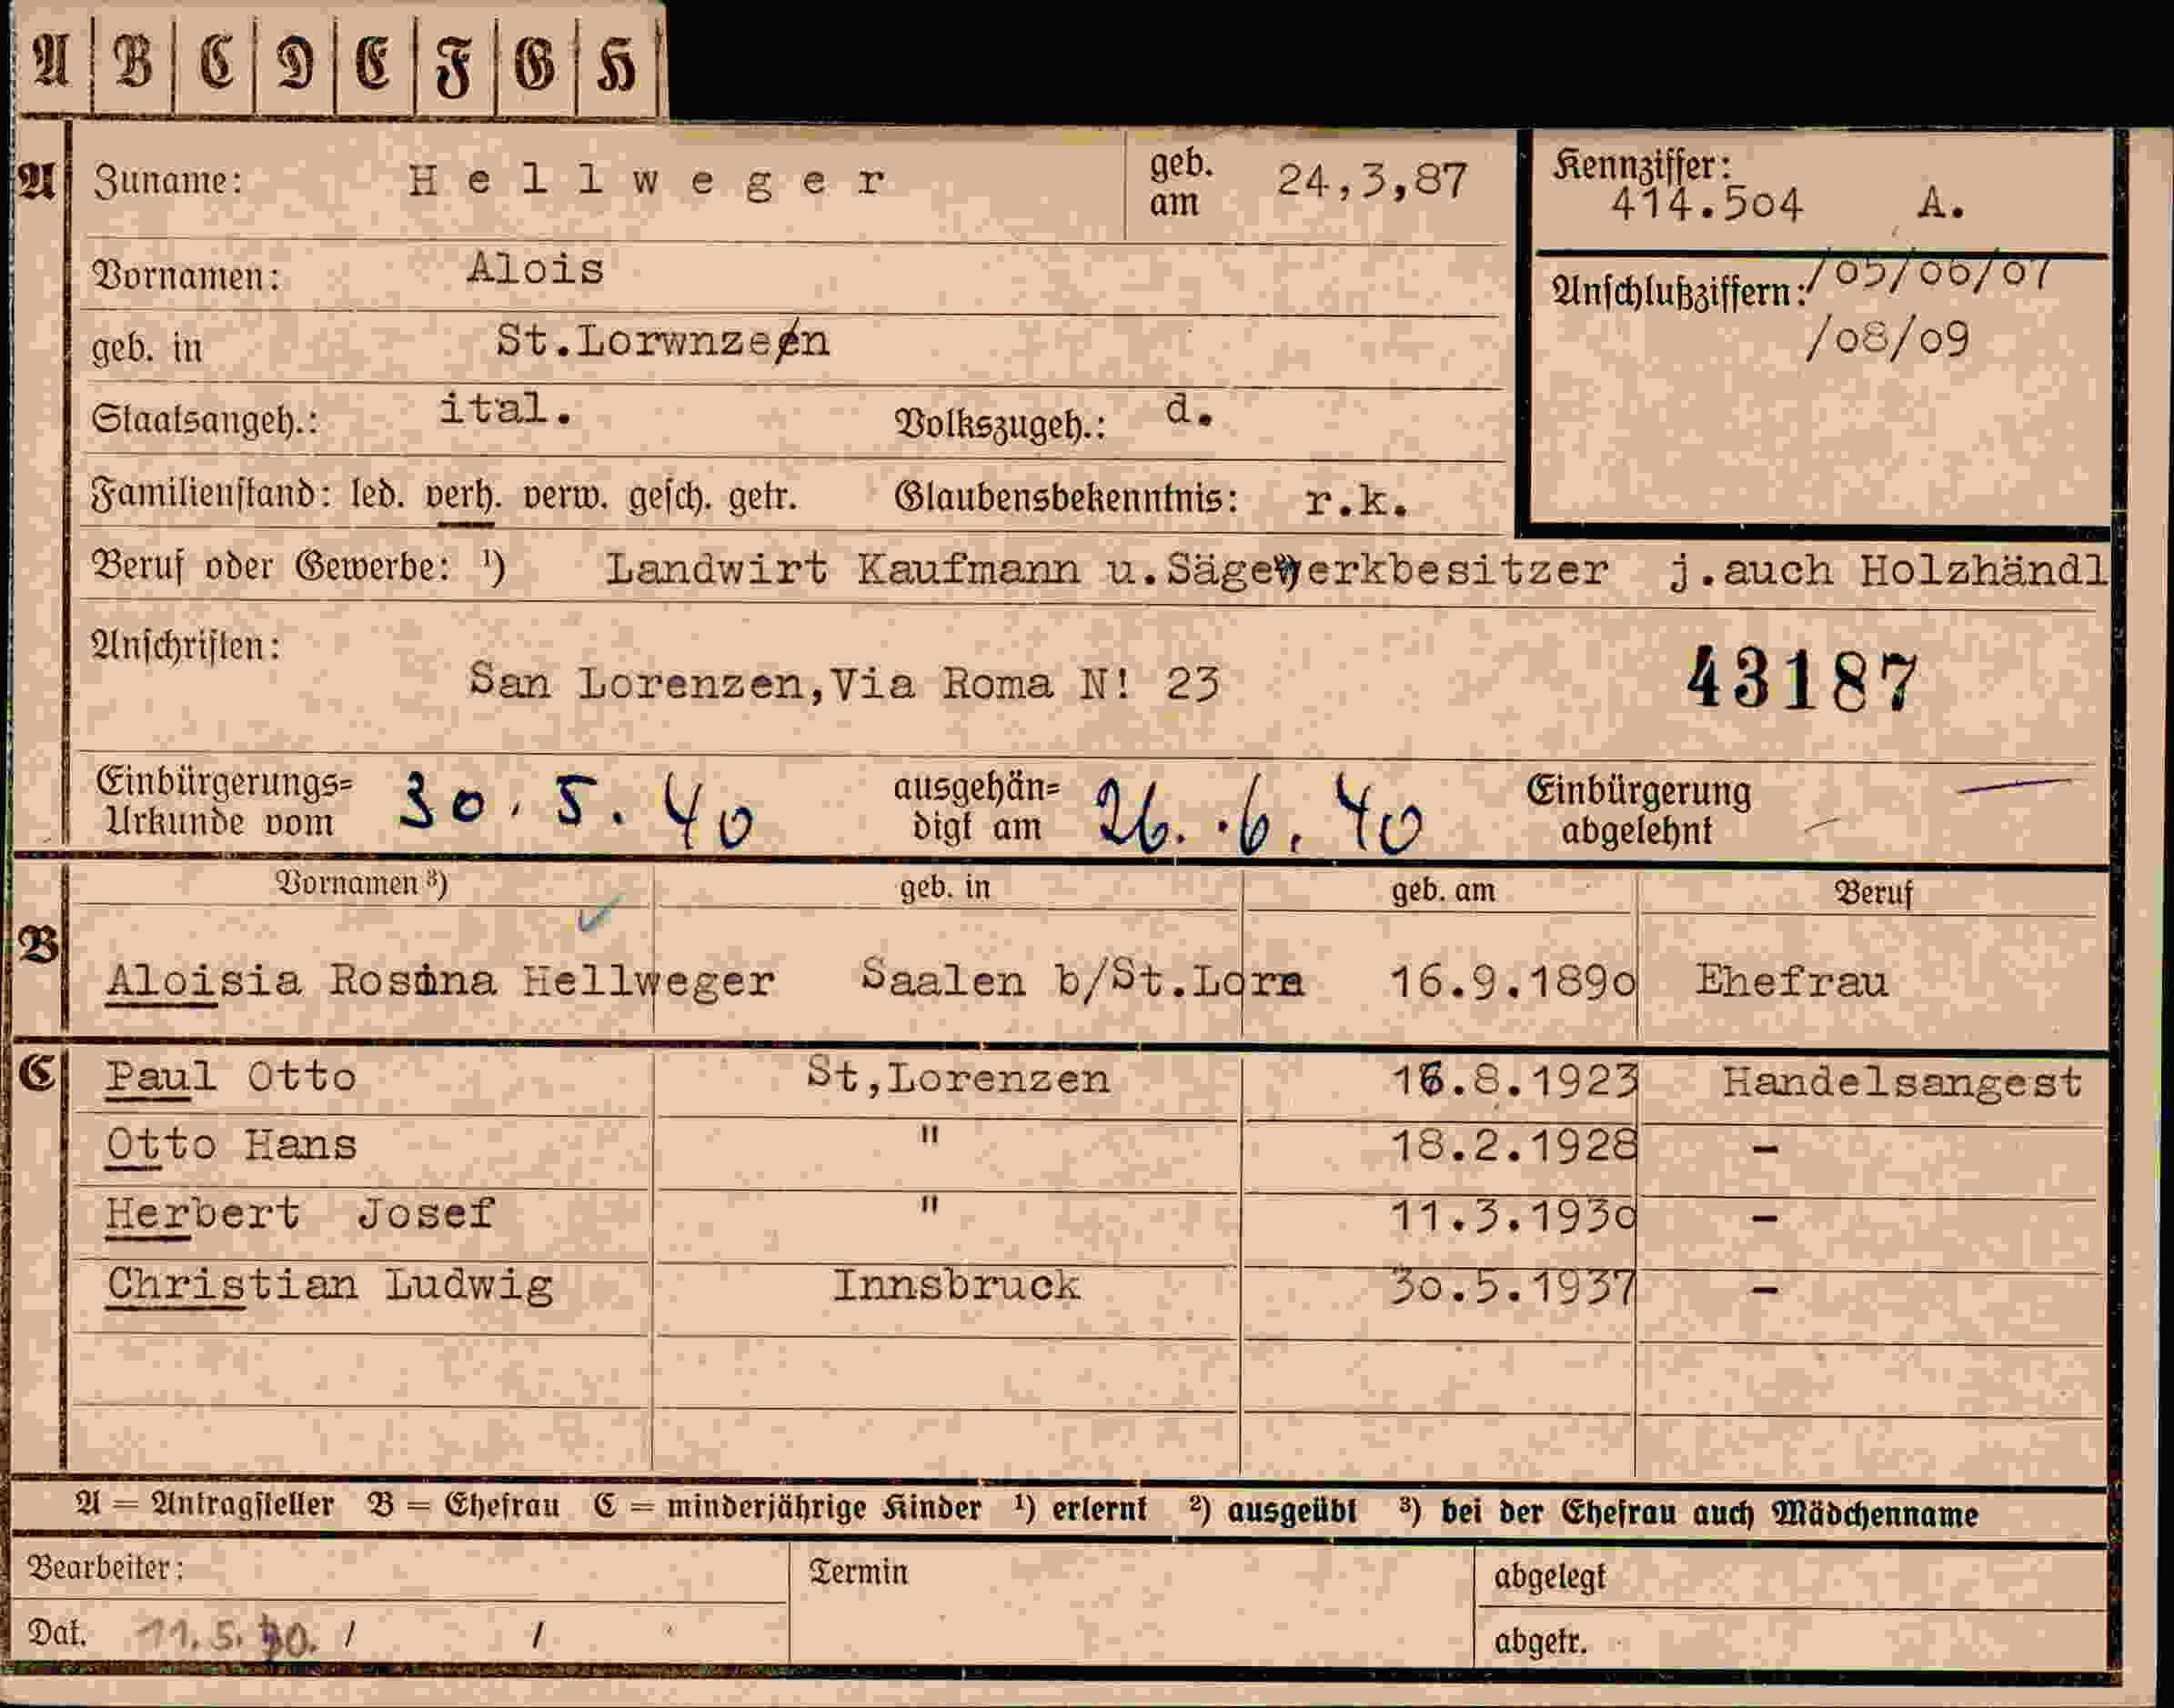 A B C D E F G H
A Zuname: Hellweger geb. am 24,3,87 Kennziffer: 414.504 A.
Vornamen: Alois Anschlußziffern: /05/06/07
geb. in St.Lorwnzeen /08/09
Staatsangeh.: ital. Volkszugeh.: d.
Familienstand: led. verh. verw. gesch. getr. Glaubensbekenntnis: r.k.
Beruf oder Gewerbe: ¹) Landwirt Kaufmann u.Sägewerkbesitzer j.auch Holzhändl
Anschriften:
San Lorenzen,Via Roma N! 23 43187
Einbürgerungs= Urkunde vom 30.5.40 ausgehän= digt am 26.6.40 Einbürgerung abgelehnt —
Vornamen ³) geb. in geb. am Beruf
B Aloisia Rosina Hellweger Saalen b/St.Lorn 16.9.1890 Ehefrau
C Paul Otto St,Lorenzen 16.8.1923 Handelsangest
Otto Hans " 18.2.1928 –
Herbert Josef " 11.3.1930 –
Christian Ludwig Innsbruck 30.5.1937 –
A = Antragsteller B = Ehefrau C = minderjährige Kinder ¹) erlernt ²) ausgeübt ³) bei der Ehefrau auch Mädchenname
Bearbeiter: Termin abgelegt
Dat. 11.5.40. / / abgetr.